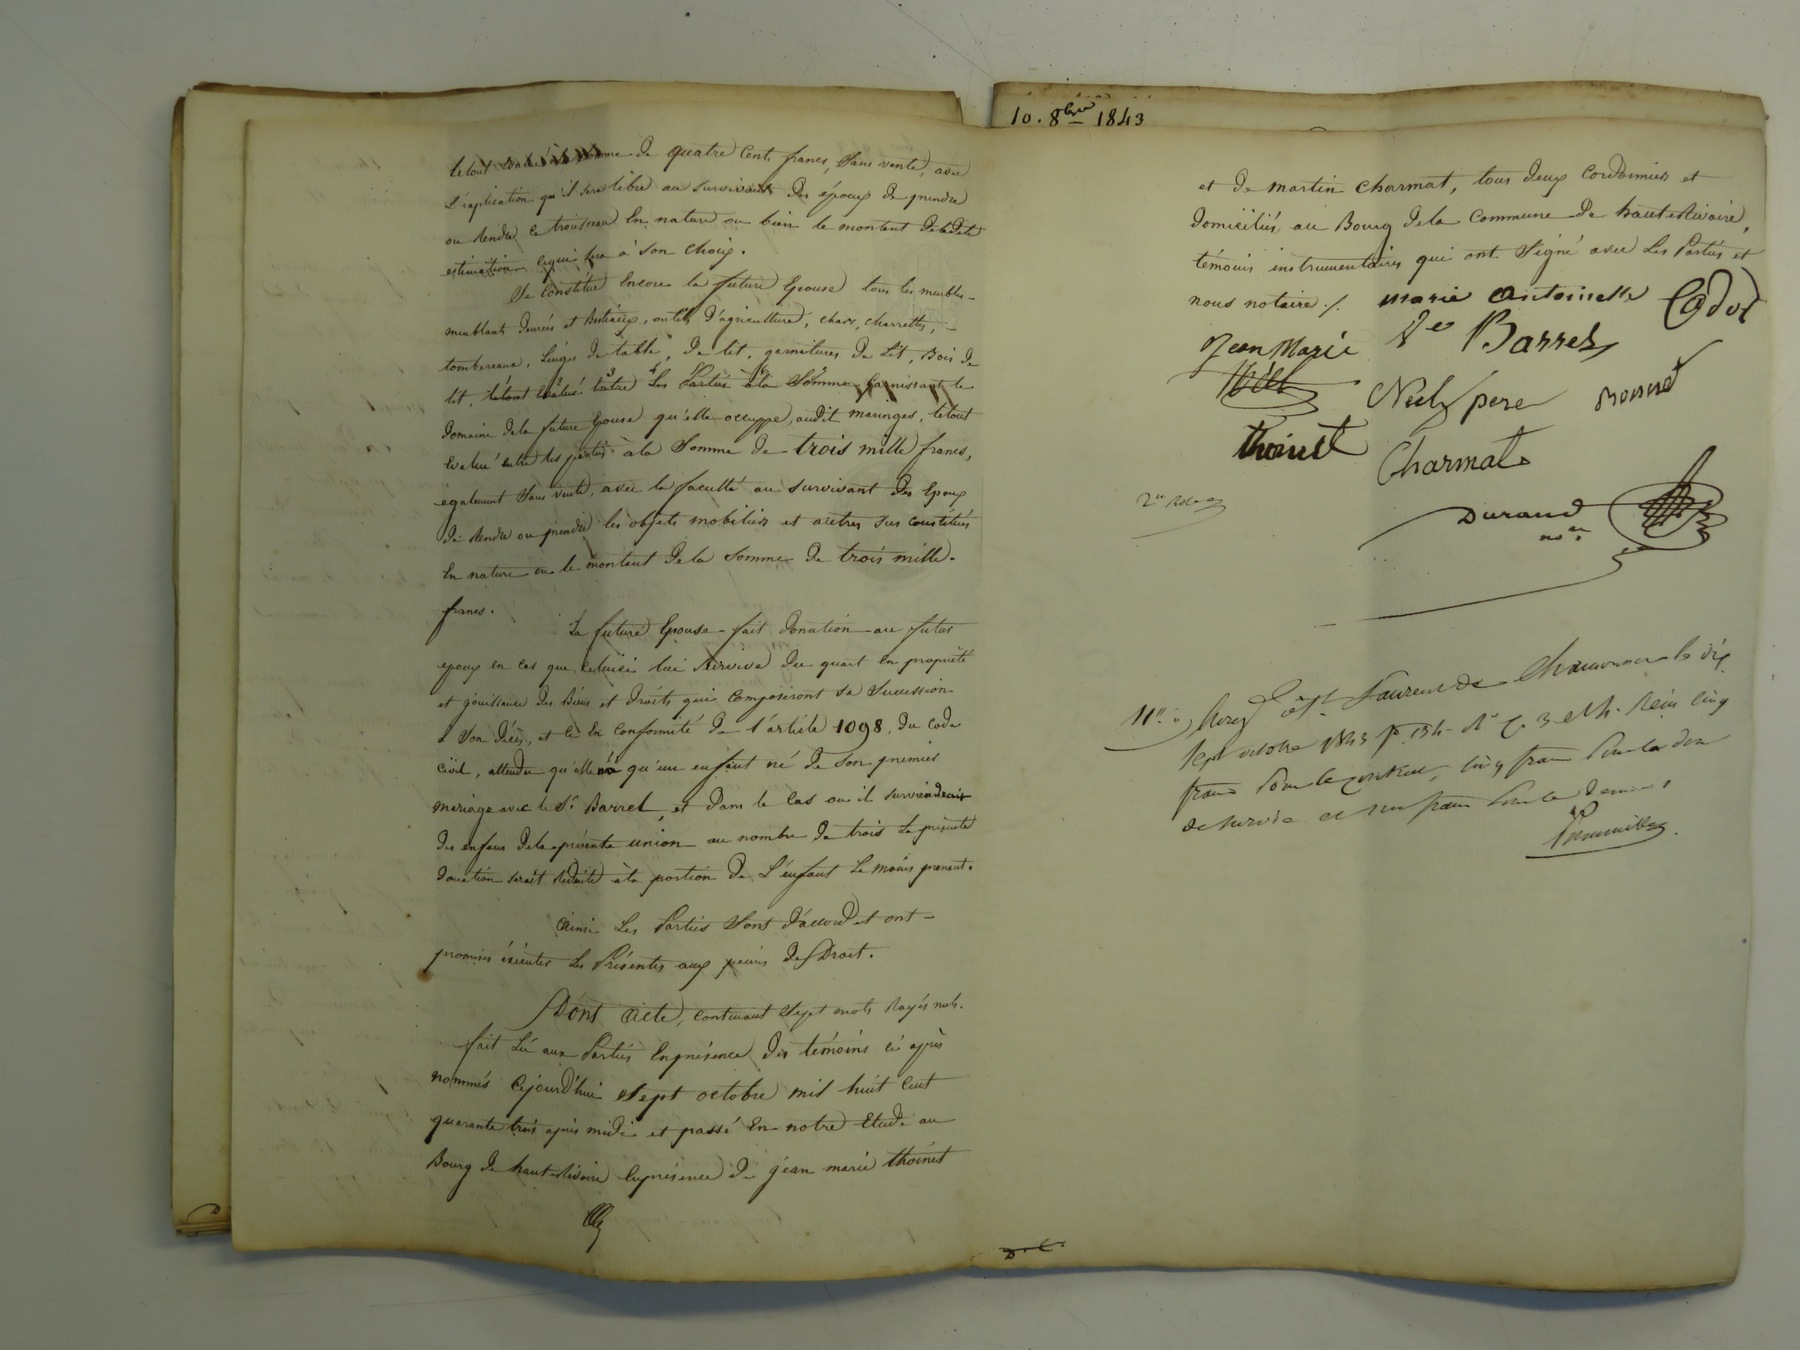 letout évalué à la somme de quatre Cent francs, Sans vente, avec
L'explication qu'il sera libre au survivant des époux de prendre
ou Rendre ce trousseau En nature ou bien le montant de ladite
estimation cequi sera à son choix.
Se Constitue Encore la future Epouse tous les meubles-
meublants denrées et Bestiaux, outils d'agriculture, chars, charrettes, -
tombereaux, Linges de table, de lit, garnitures de Lit, Bois de
lit, letout évalué Entre Les Parties à la Somme Garnissant le
domaine dela future Epouse qu'elle occuppe, audit maringes, letout
Evalué entre les parties à la Somme de trois mille francs,
également Sans vente, avec la faculté au survivant des Epoux
de Rendre ou prendre les objets mobiliers et autres sus constitués
En nature ou le montant de la somme de trois mille-
francs.
La future Epouse fait donation au futur
epoux en cas que celuici lui Survive du quart en propriété
et jouissance des Biens et droits qui Composeront sa Succession
à Son décès, et ce En conformité de l'article 1098, du code
civil, attendu qu'elle n'a qu'un enfant né de son premier
mariage avec le Sr Barret, et dans le Cas ou il surviendrait
des enfans dela présente union au nombre de trois La présente
donation serait Réduite à la portion de L'enfant Le moins prenant.
Ainsi Les Parties Sont d'accord et ont-
promis éxécuter Les Présentes aux peines de Droit.
Dont Acte, contenant Sept mots Rayés nuls.
fait Lu aux Parties Enprésence des témoins ci après
nommés Cejourd'hui Sept octobre mil huit Cent
quarante trois après midi et passé En notre Etude au
Bourg de hauterivoire Enprésence de jean marie thoinet
10. 8bre 1843
et de martin Charmat, tous deux Cordonniers et
domiciliés au Bourg dela Commune de hauterivoire,
témoins instrumentaires qui ont Signé avec Les Parties et
nous notaire ./. marie antoinette Codet
Jean Marie Ve Barret
Néel père
thoinet Charmat
2me Role
Durand
nre
Enregé à St Laurent de Chamousset le dix
Sept octobre 1843 Reçu Cinq
francs Pour le contrat, Cinq francs Pour la don
de survie et un franc Pour le Décime
D. C.